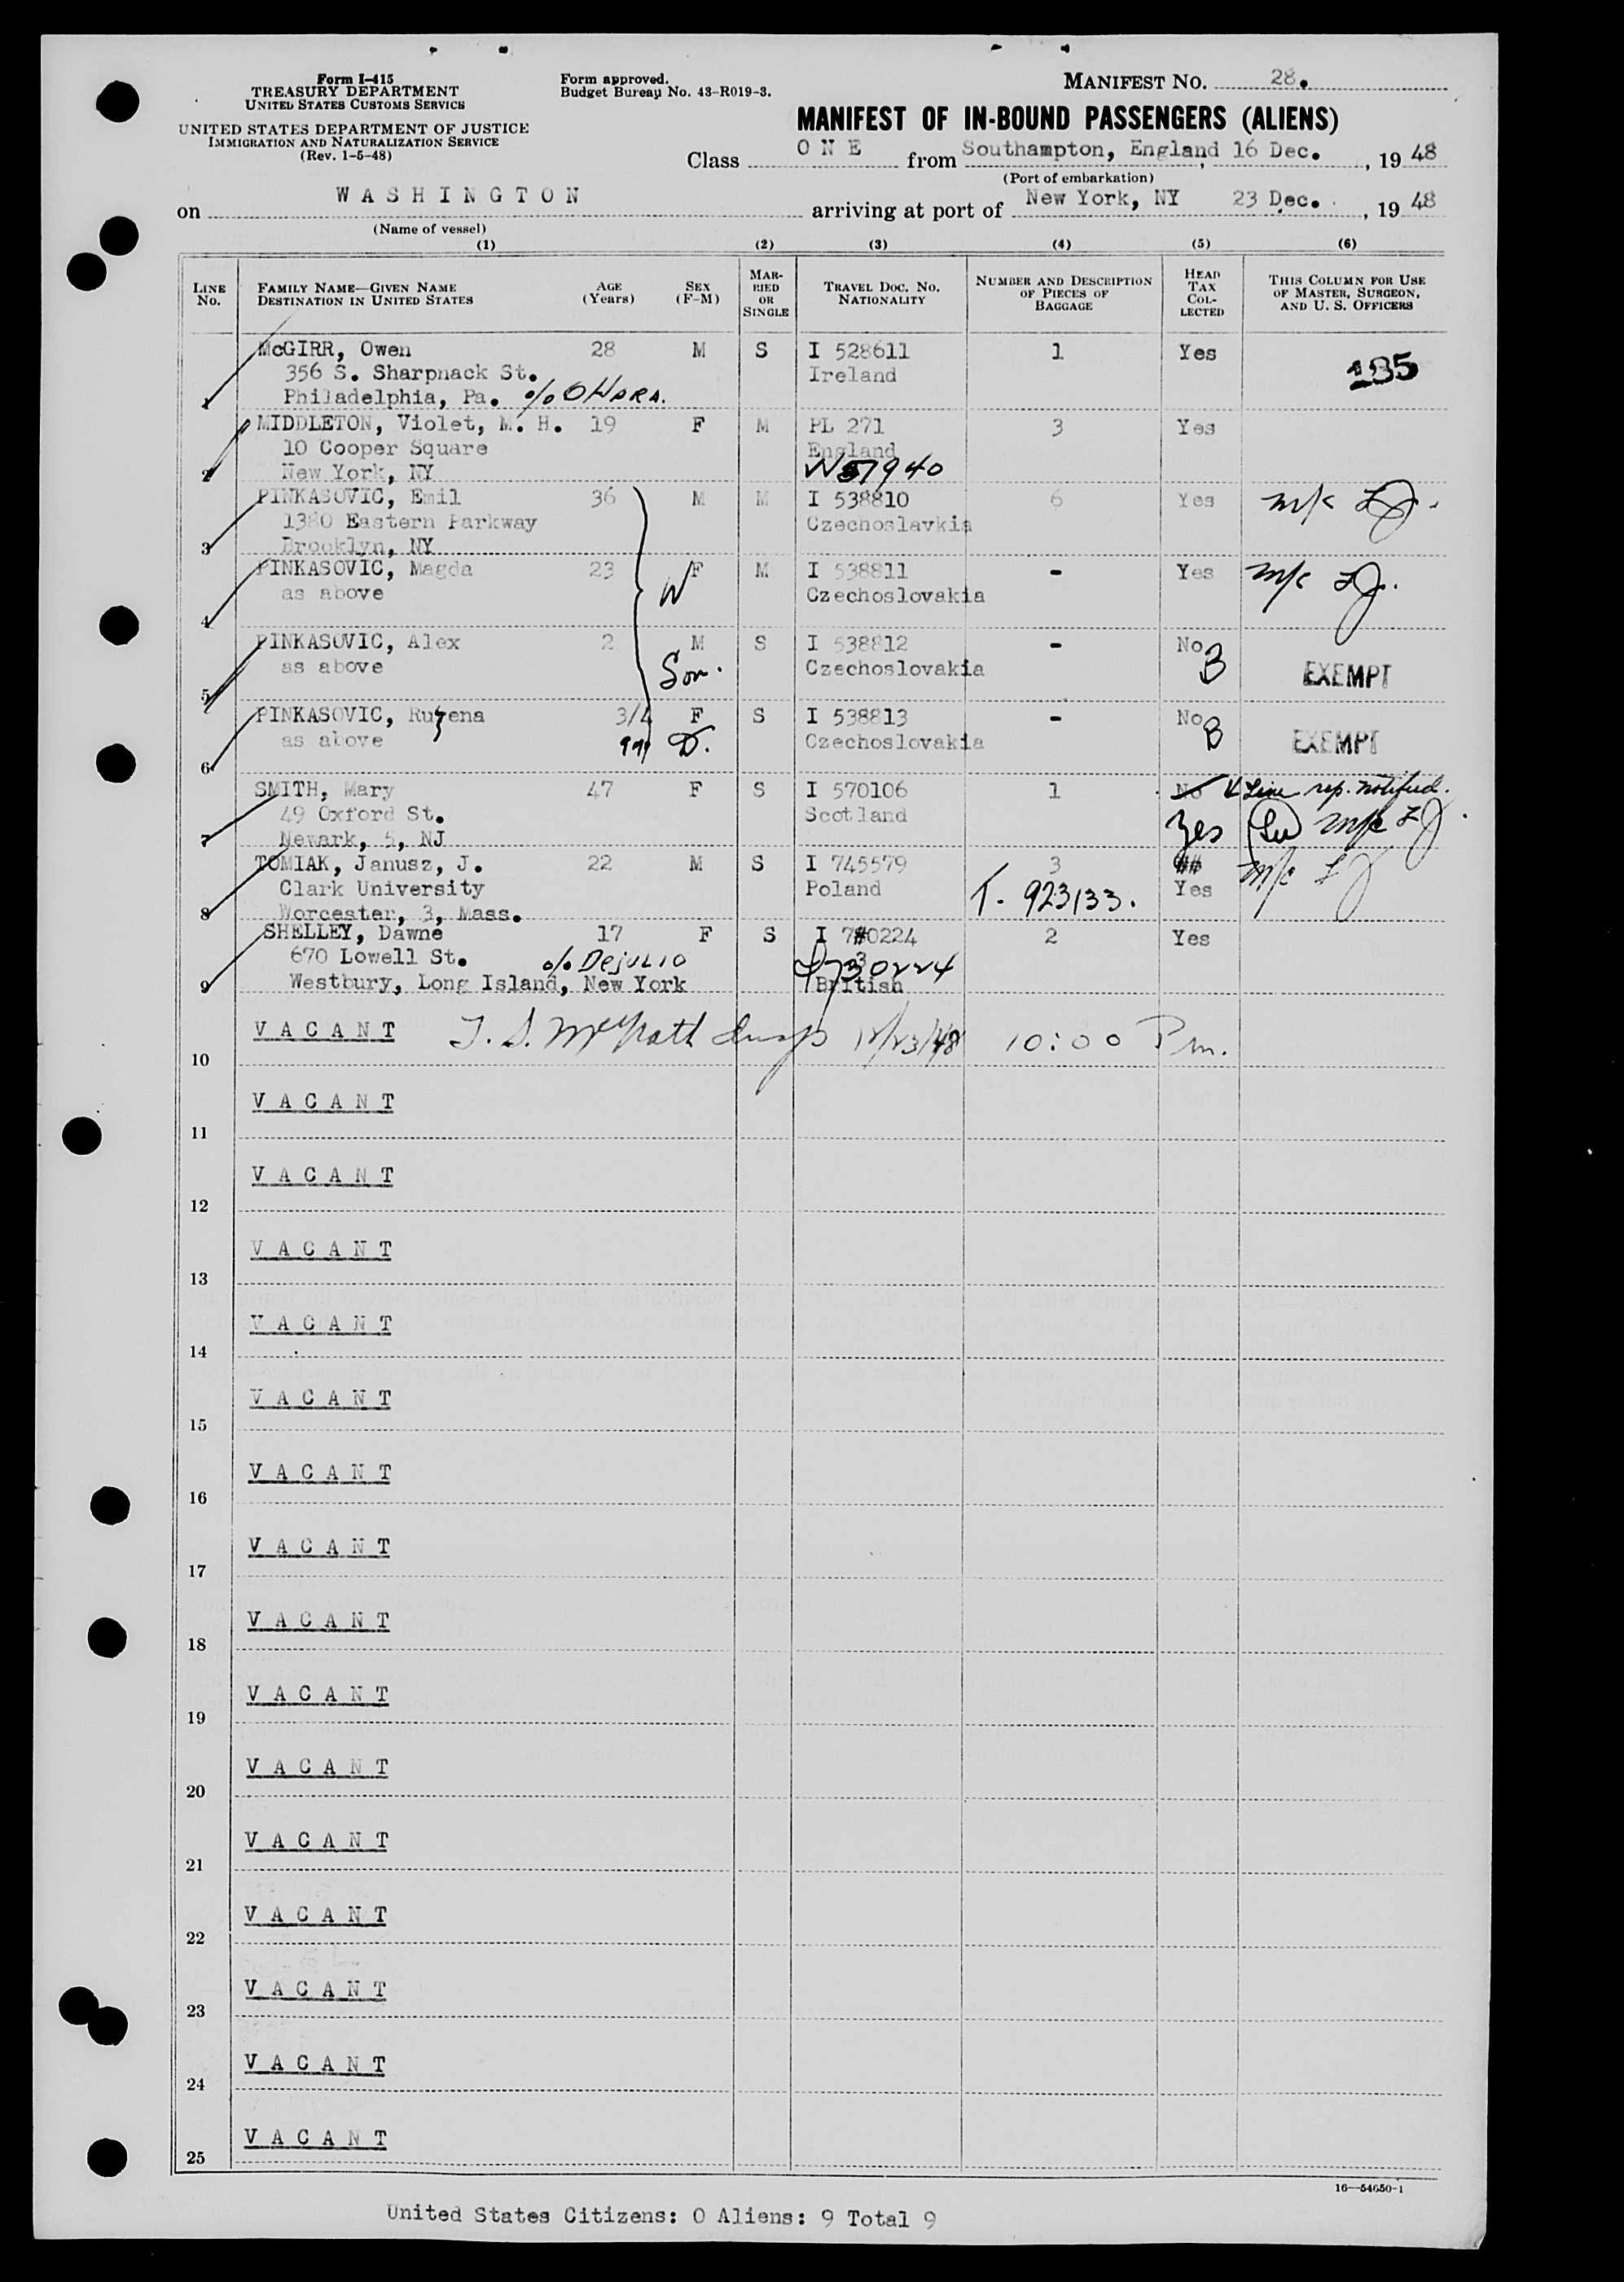 Form I-415
TREASURY DEPARTMENT
UNITED STATES CUSTOMS SERVICE
UNITED STATES DEPARTMENT OF JUSTICE
IMMIGRATION AND NATURALIZATION SERVICE
(Rev. 1-5-48)
Form approved.
Budget Bureau No. 43-R019-3.
MANIFEST NO. 28.
MANIFEST OF IN-BOUND PASSENGERS (ALIENS)
Class O N E from Southampton, England, 16 Dec. , 19 48
(Port of embarkation)
on W A S H I N G T O N arriving at port of New York, NY 23 Dec. , 19 48
(Name of vessel)
(1) (2) (3) (4) (5) (6)
LINE No. FAMILY NAME—GIVEN NAME DESTINATION IN UNITED STATES AGE (Years) SEX (F-M) MARRIED OR SINGLE TRAVEL DOC. NO. NATIONALITY NUMBER AND DESCRIPTION OF PIECES OF BAGGAGE HEAD TAX COLLECTED THIS COLUMN FOR USE OF MASTER, SURGEON, AND U. S. OFFICERS
McGIRR, Owen 28 M S I 528611 1 Yes
356 S. Sharpnack St. Ireland 135
1 Philadelphia, Pa. % O HARA.
MIDDLETON, Violet, M. H. 19 F M PL 271 3 Yes
10 Cooper Square England
2 New York, NY W 57940
PINKASOVIC, Emil 36 M M I 538810 6 Yes m/c LJ.
1380 Eastern Parkway Czechoslavkia
3 Brooklyn, NY
PINKASOVIC, Magda 23 F M I 538811 - Yes m/c LJ.
as above W Czechoslovakia
4
PINKASOVIC, Alex 2 M S I 538812 - No B
as above Son. Czechoslovakia EXEMPT
5
PINKASOVIC, Ruzena 3/4 F S I 538813 - No B
as above D. Czechoslovakia EXEMPT
6
SMITH, Mary 47 F S I 570106 1 No Line rep. notified.
49 Oxford St. Scotland Yes m/c LJ.
7 Newark, 5, NJ
TOMIAK, Janusz, J. 22 M S I 745579 3 ## m/c LJ
Clark University Poland T- 923133. Yes
8 Worcester, 3, Mass.
SHELLEY, Dawne 17 F S I 7#0224 2 Yes
670 Lowell St. % DeJULIO 3 730224
9 Westbury, Long Island, New York British
V A C A N T T. S. McGrath Insp 12/23/48 10:00 Pm.
10
V A C A N T
11
V A C A N T
12
V A C A N T
13
V A C A N T
14
V A C A N T
15
V A C A N T
16
V A C A N T
17
V A C A N T
18
V A C A N T
19
V A C A N T
20
V A C A N T
21
V A C A N T
22
V A C A N T
23
V A C A N T
24
V A C A N T
25
16—54650-1
United States Citizens: 0 Aliens: 9 Total 9